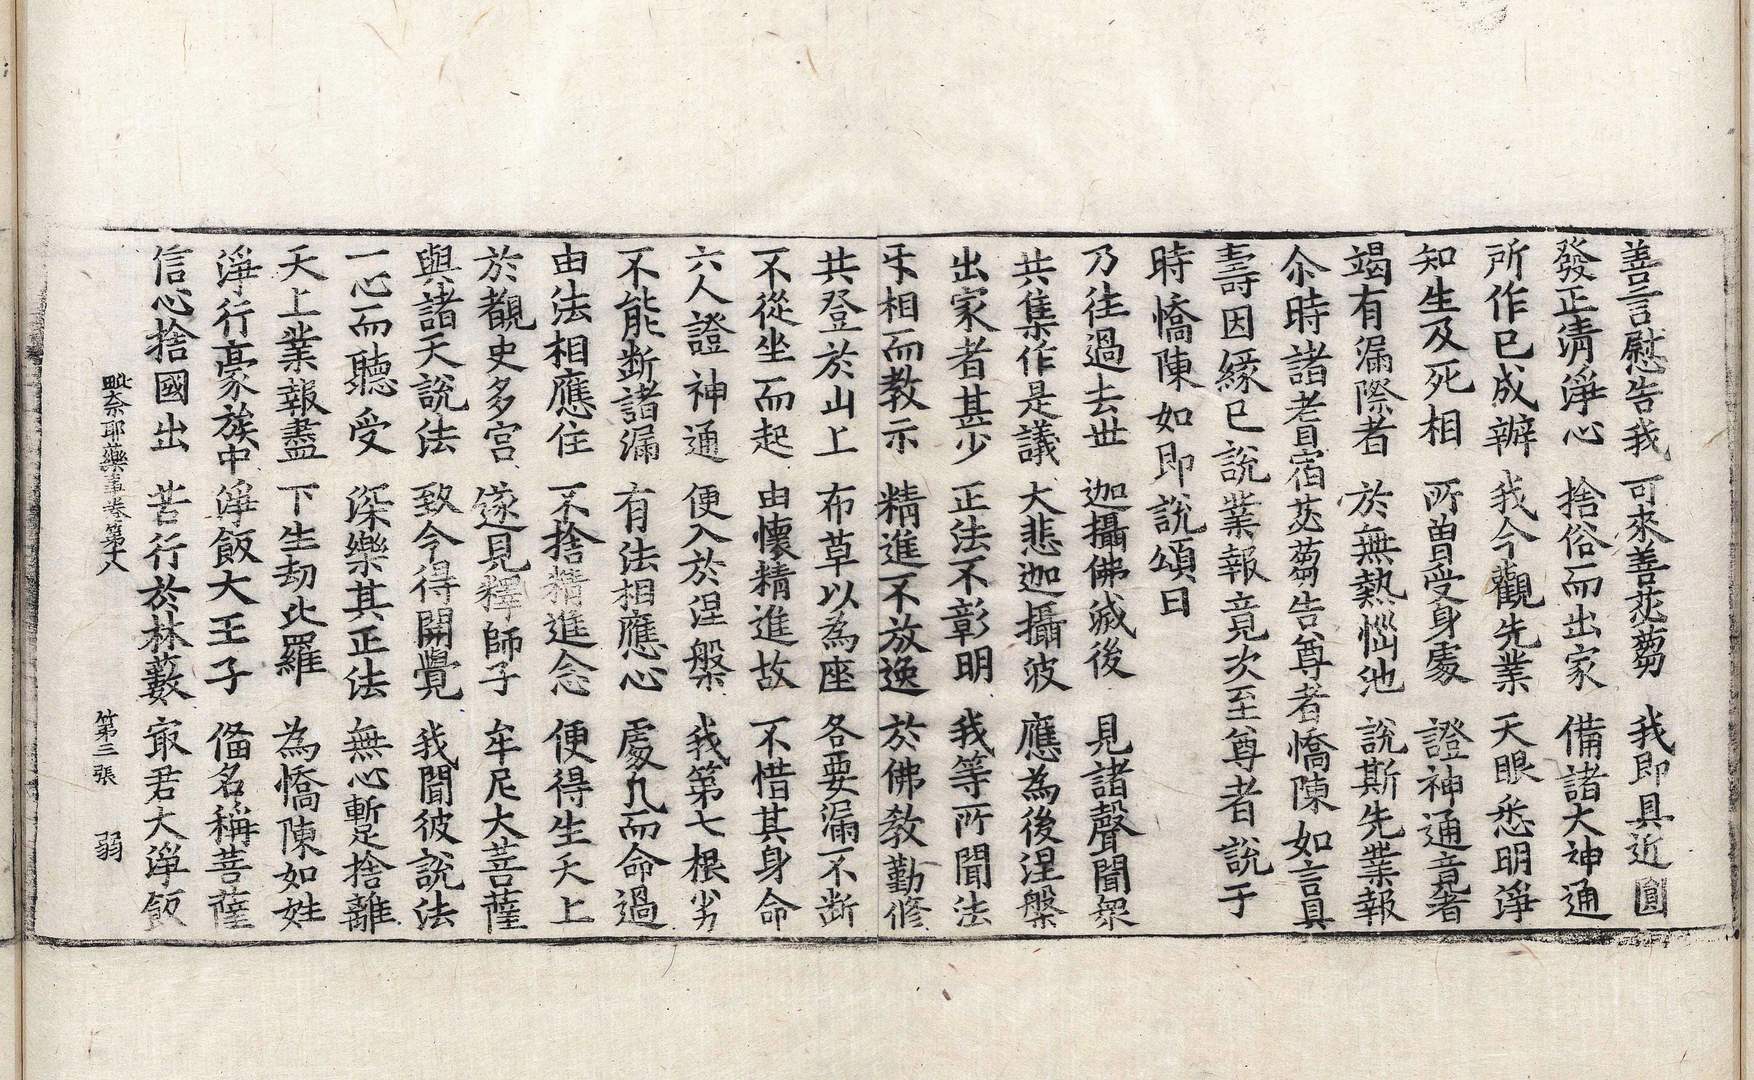 善言慰告我　可來善苾蒭　我即具近圓
發正清淨心　捨俗而出家　備諸大神通
所作已成辦　我今觀先業　天眼悉明淨
知生及死相　所曾受身處　證神通竟者
竭有漏際者　於無熱惱池　說斯先業報
尒時諸耆宿苾蒭告尊者憍陳如言具
壽因緣已說業報竟次至尊者說于
時憍陳如即說頌曰
乃往過去世　迦攝佛滅後　見諸聲聞眾
共集作是議　大悲迦攝波　應為後涅槃
出家者甚少　正法不彰明　我等所聞法
𠂔相而教示　精進不放逸　於佛教勤修
共登於山上　布草以為座　各要漏不斷
不從坐而起　由懷精進故　不惜其身命
六人證神通　便入於涅槃　我第七根劣
不能斷諸漏　有法相應心　處凡而命過
由法相應住　不捨精進念　便得生天上
於覩史多宮　遂見釋師子　牟尼大菩薩
與諸天說法　致今得開覺　我聞彼說法
一心而聽受　深樂其正法　無心暫捨離
天上業報盡　下生劫比羅　為憍陳如姓
淨行豪族中　淨飯大王子　俻名稱菩薩
信心捨國出　苦行於林藪　㝡君大淨飯
毗奈耶藥事卷第十八　第三張　弱